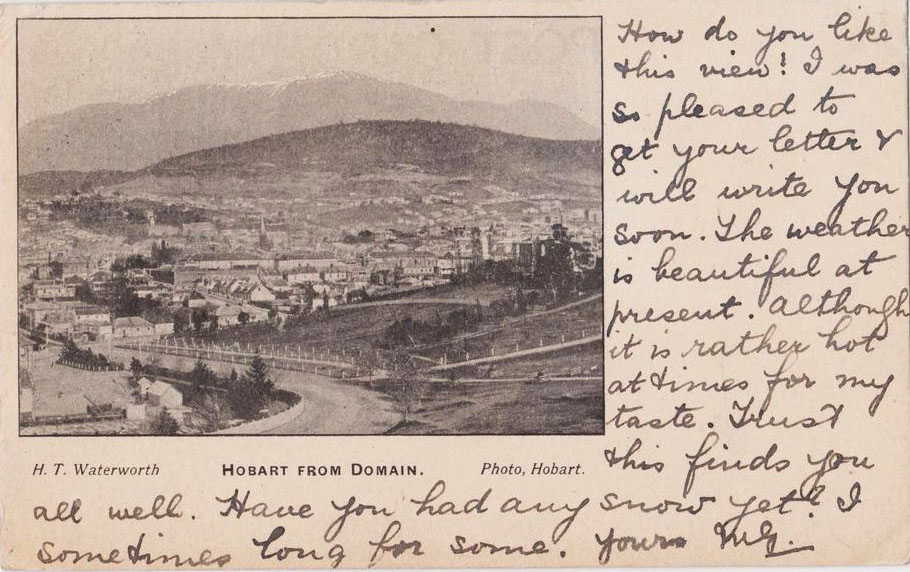 How do you like
this view! I was
so pleased to
get your letter &
will write you
soon. The weather
is beautiful at
present. Although
it is rather hot
at times for my
taste. Trust
this finds you
H. T. Waterworth
HOBART FROM DOMAIN.
Photo, Hobart.
all well. Have you had any snow yet? I
sometimes long for some. Yours